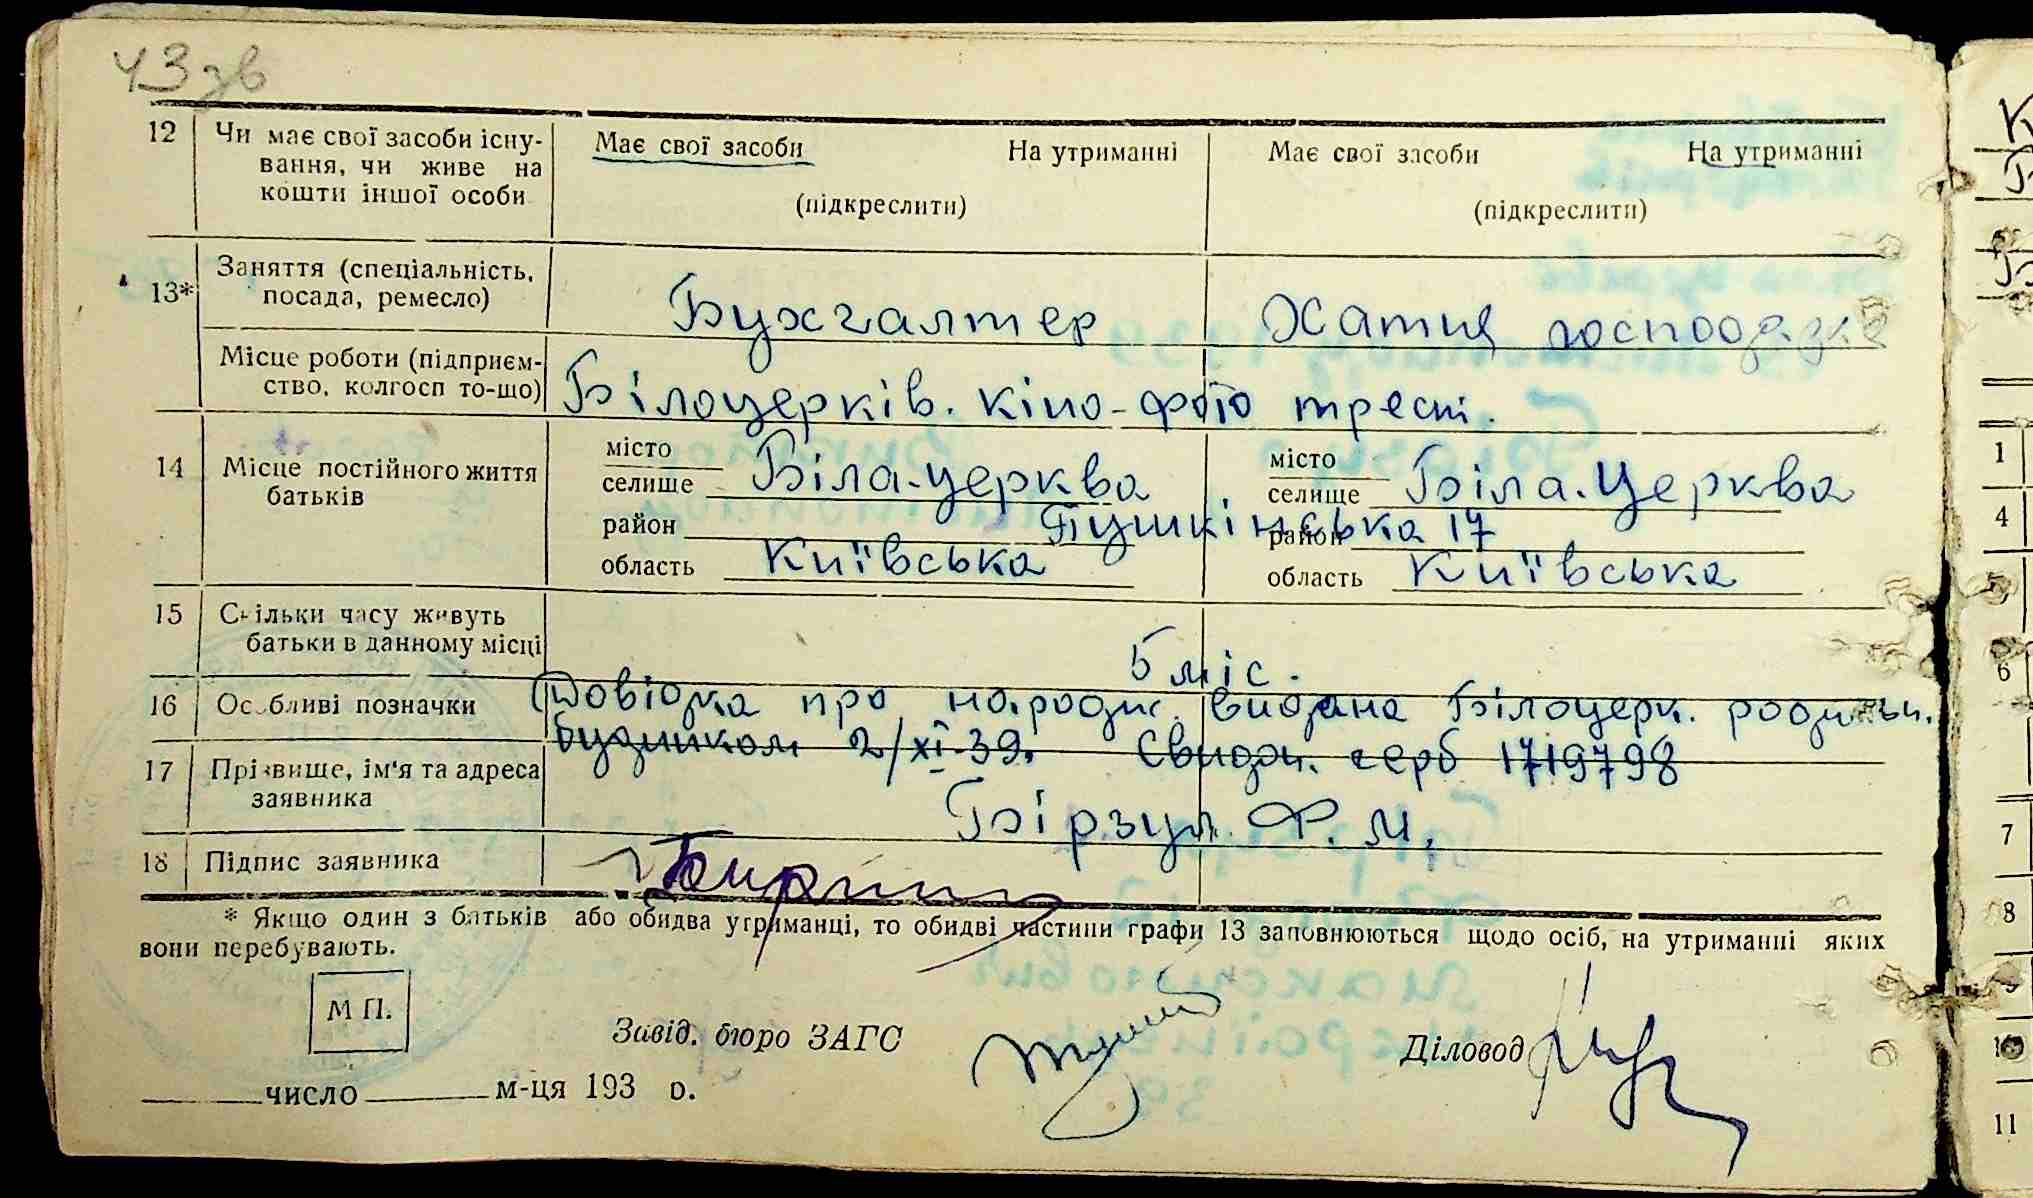 43 зв
12 Чи має свої засоби існу- Має свої засоби На утриманні Має свої засоби На утриманні
вання, чи живе на
кошти іншої особи (підкреслити) (підкреслити)
13* Заняття (спеціальність,
посада, ремесло) Бухгалтер Хатня господарка
Місце роботи (підприєм-
ство, колгосп то-що) Білоцерків. кіно-фото трест.
14 Місце постійного життя
батьків
місто
селище Біла-церква
місто
селище Біла.Церква
район Пушкінська 17 район
область Київська область Київська
15 Скільки часу живуть
батьки в данному місці 5 міс.
16 Особливі позначки Довідка про народж. видана Білоцерк. родильн.
будинком 2/XI-39. Свидоц. серб 1719798
17 Прізвище, ім'я та адреса
заявника Бірзул. Ф. М.
18 Підпис заявника
* Якщо один з батьків або обидва утриманці, то обидві частини графи 13 заповнюються щодо осіб, на утриманні яких
вони перебувають.
М П.
Завід. бюро ЗАГС Діловод
число м-ця 193 о.
1
4
5
6
7
8
9
10
11